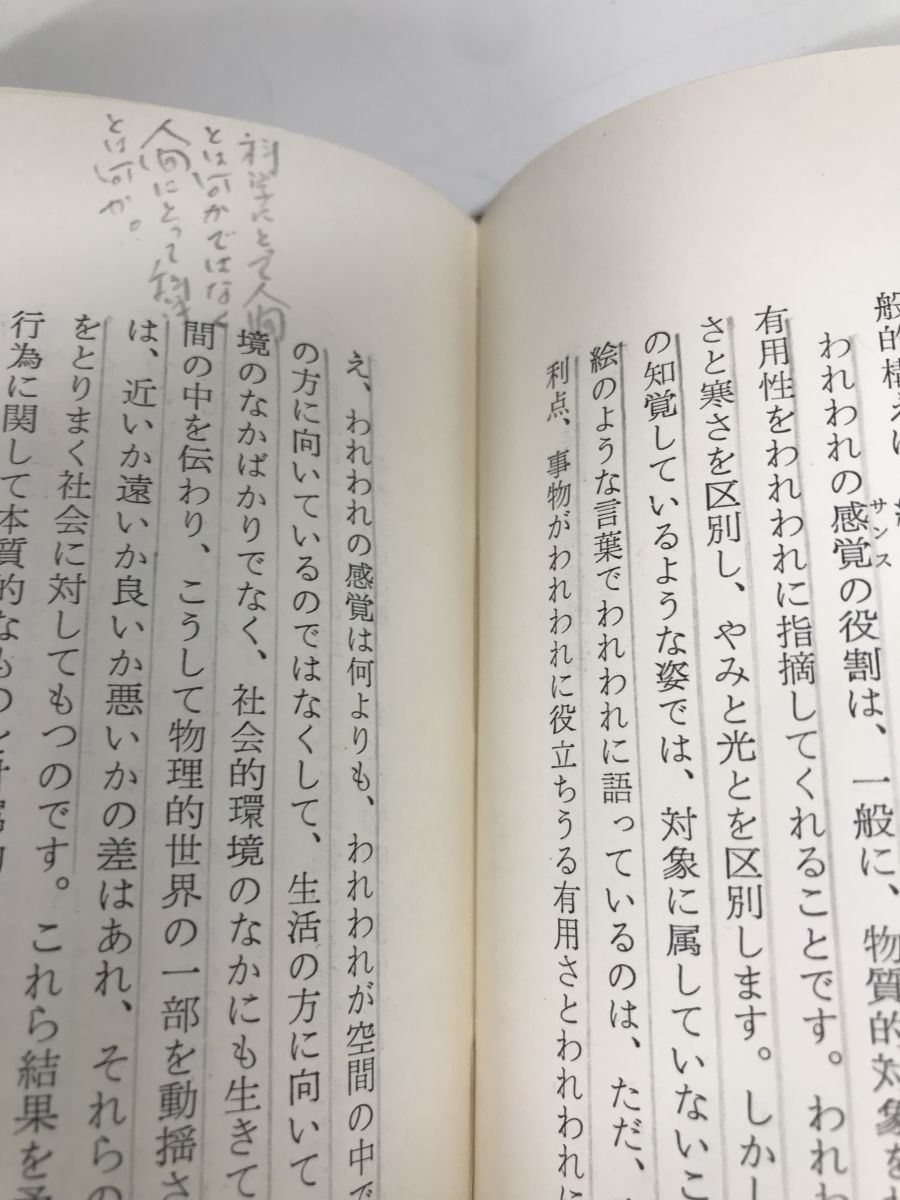 般的構え
われわれの感覚の役割は、一般に、物質的対象を
サンス
有用性をわれわれに指摘してくれることです。われ
さと寒さを区別し、やみと光とを区別します。しか
の知覚しているような姿では、対象に属していないこ
絵のような言葉でわれわれに語っているのは、ただ、
利点、事物がわれわれに役立ちうる有用さとわれわれに
科学にとって人間
とは何かではなく
人間にとって科学
とは何か。
え、われわれの感覚は何よりも、われわれが空間の中で
の方に向いているのではなくして、生活の方に向いて
境のなかばかりでなく、社会的環境のなかにも生きて
間の中を伝わり、こうして物理的世界の一部を動揺さ
は、近いか遠いか良いか悪いかの差はあれ、それらの
をとりまく社会に対してもつのです。これら結果を
行為に関して本質的なもの